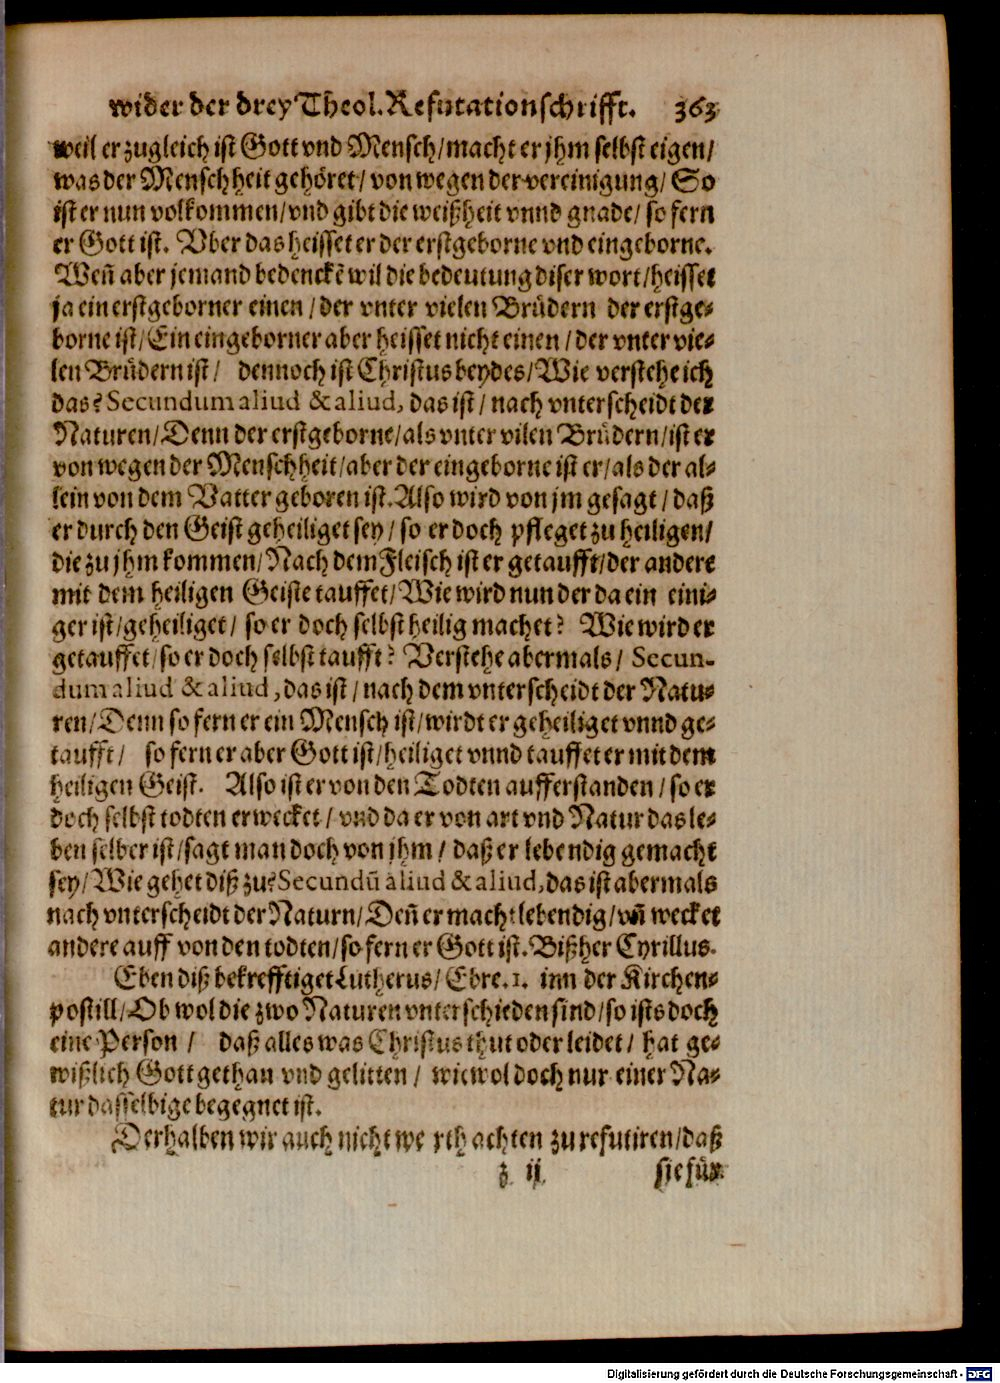 wider der drey Theol. Refutationschrifft. 363
weil er zugleich ist Gott vnd Mensch/macht er jhm selbst eigen/
was der Menschheit gehöret/ von wegen der vereinigung/ So
ist er nun volkommen/vnd gibt die weißheit vnnd gnade/ so fern
er Gott ist. Vber das heisset er der erstgeborne vnd eingeborne.
Weñ aber jemand bedenckē wil die bedeutung diser wort/heisset
ja ein erstgeborner einen/ der vnter vielen Brüdern der erstge-
borne ist/Ein eingeborner aber heisset nicht einen/ der vnter vie-
len Brüdern ist/ dennoch ist Christus beydes/Wie verstehe ich
das? Secundum aliud & aliud, das ist/ nach vnterscheidt der
Naturen/Denn der erstgeborne/als vnter vilen Brüdern/ist er
von wegen der Menschheit/aber der eingeborne ist er/als der al-
lein von dem Vatter geboren ist. Also wird von jm gesagt/ daß
er durch den Geist geheiliget sey/ so er doch pfleget zu heiligen/
die zu jhm kommen/Nach dem Fleisch ist er getaufft/der andere
mit dem heiligen Geiste tauffet/Wie wird nun der da ein eini-
ger ist/geheiliget/ so er doch selbst heilig machet? Wie wird er
getauffet/so er doch selbst taufft? Verstehe abermals/ Secun-
dum aliud & aliud, das ist/ nach dem vnterscheidt der Natu-
ren/Denn so fern er ein Mensch ist/wirdt er geheiliget vnnd ge-
taufft/ so fern er aber Gott ist/heiliget vnnd tauffet er mit dem
heiligen Geist. Also ist er von den Todten aufferstanden/ so er
doch selbst todten erwecket/ vnd da er von art vnd Natur das le-
ben selber ist/sagt man doch von jhm/ daß er lebendig gemacht
sey/Wie gehet diß zu? Secundū aliud & aliud, das ist abermals
nach vnterscheidt der Naturn/Deñ er macht lebendig/vñ wecket
andere auff von den todten/so fern er Gott ist. Bißher Cyrillus.
Eben diß bekrefftiget Lutherus/ Ebre. 1. inn der Kirchen-
postill/Ob wol die zwo Naturen vnterschieden sind/so ists doch
eine Person/ daß alles was Christus thut oder leidet/ hat ge-
wißlich Gott gethan vnd gelitten/ wiewol doch nur einer Na-
tur dasselbige begegnet ist.
Derhalben wir auch nicht we rth achten zu refutiren/daß
z ij sie für
Digitalisierung gefördert durch die Deutsche Forschungsgemeinschaft - DFG